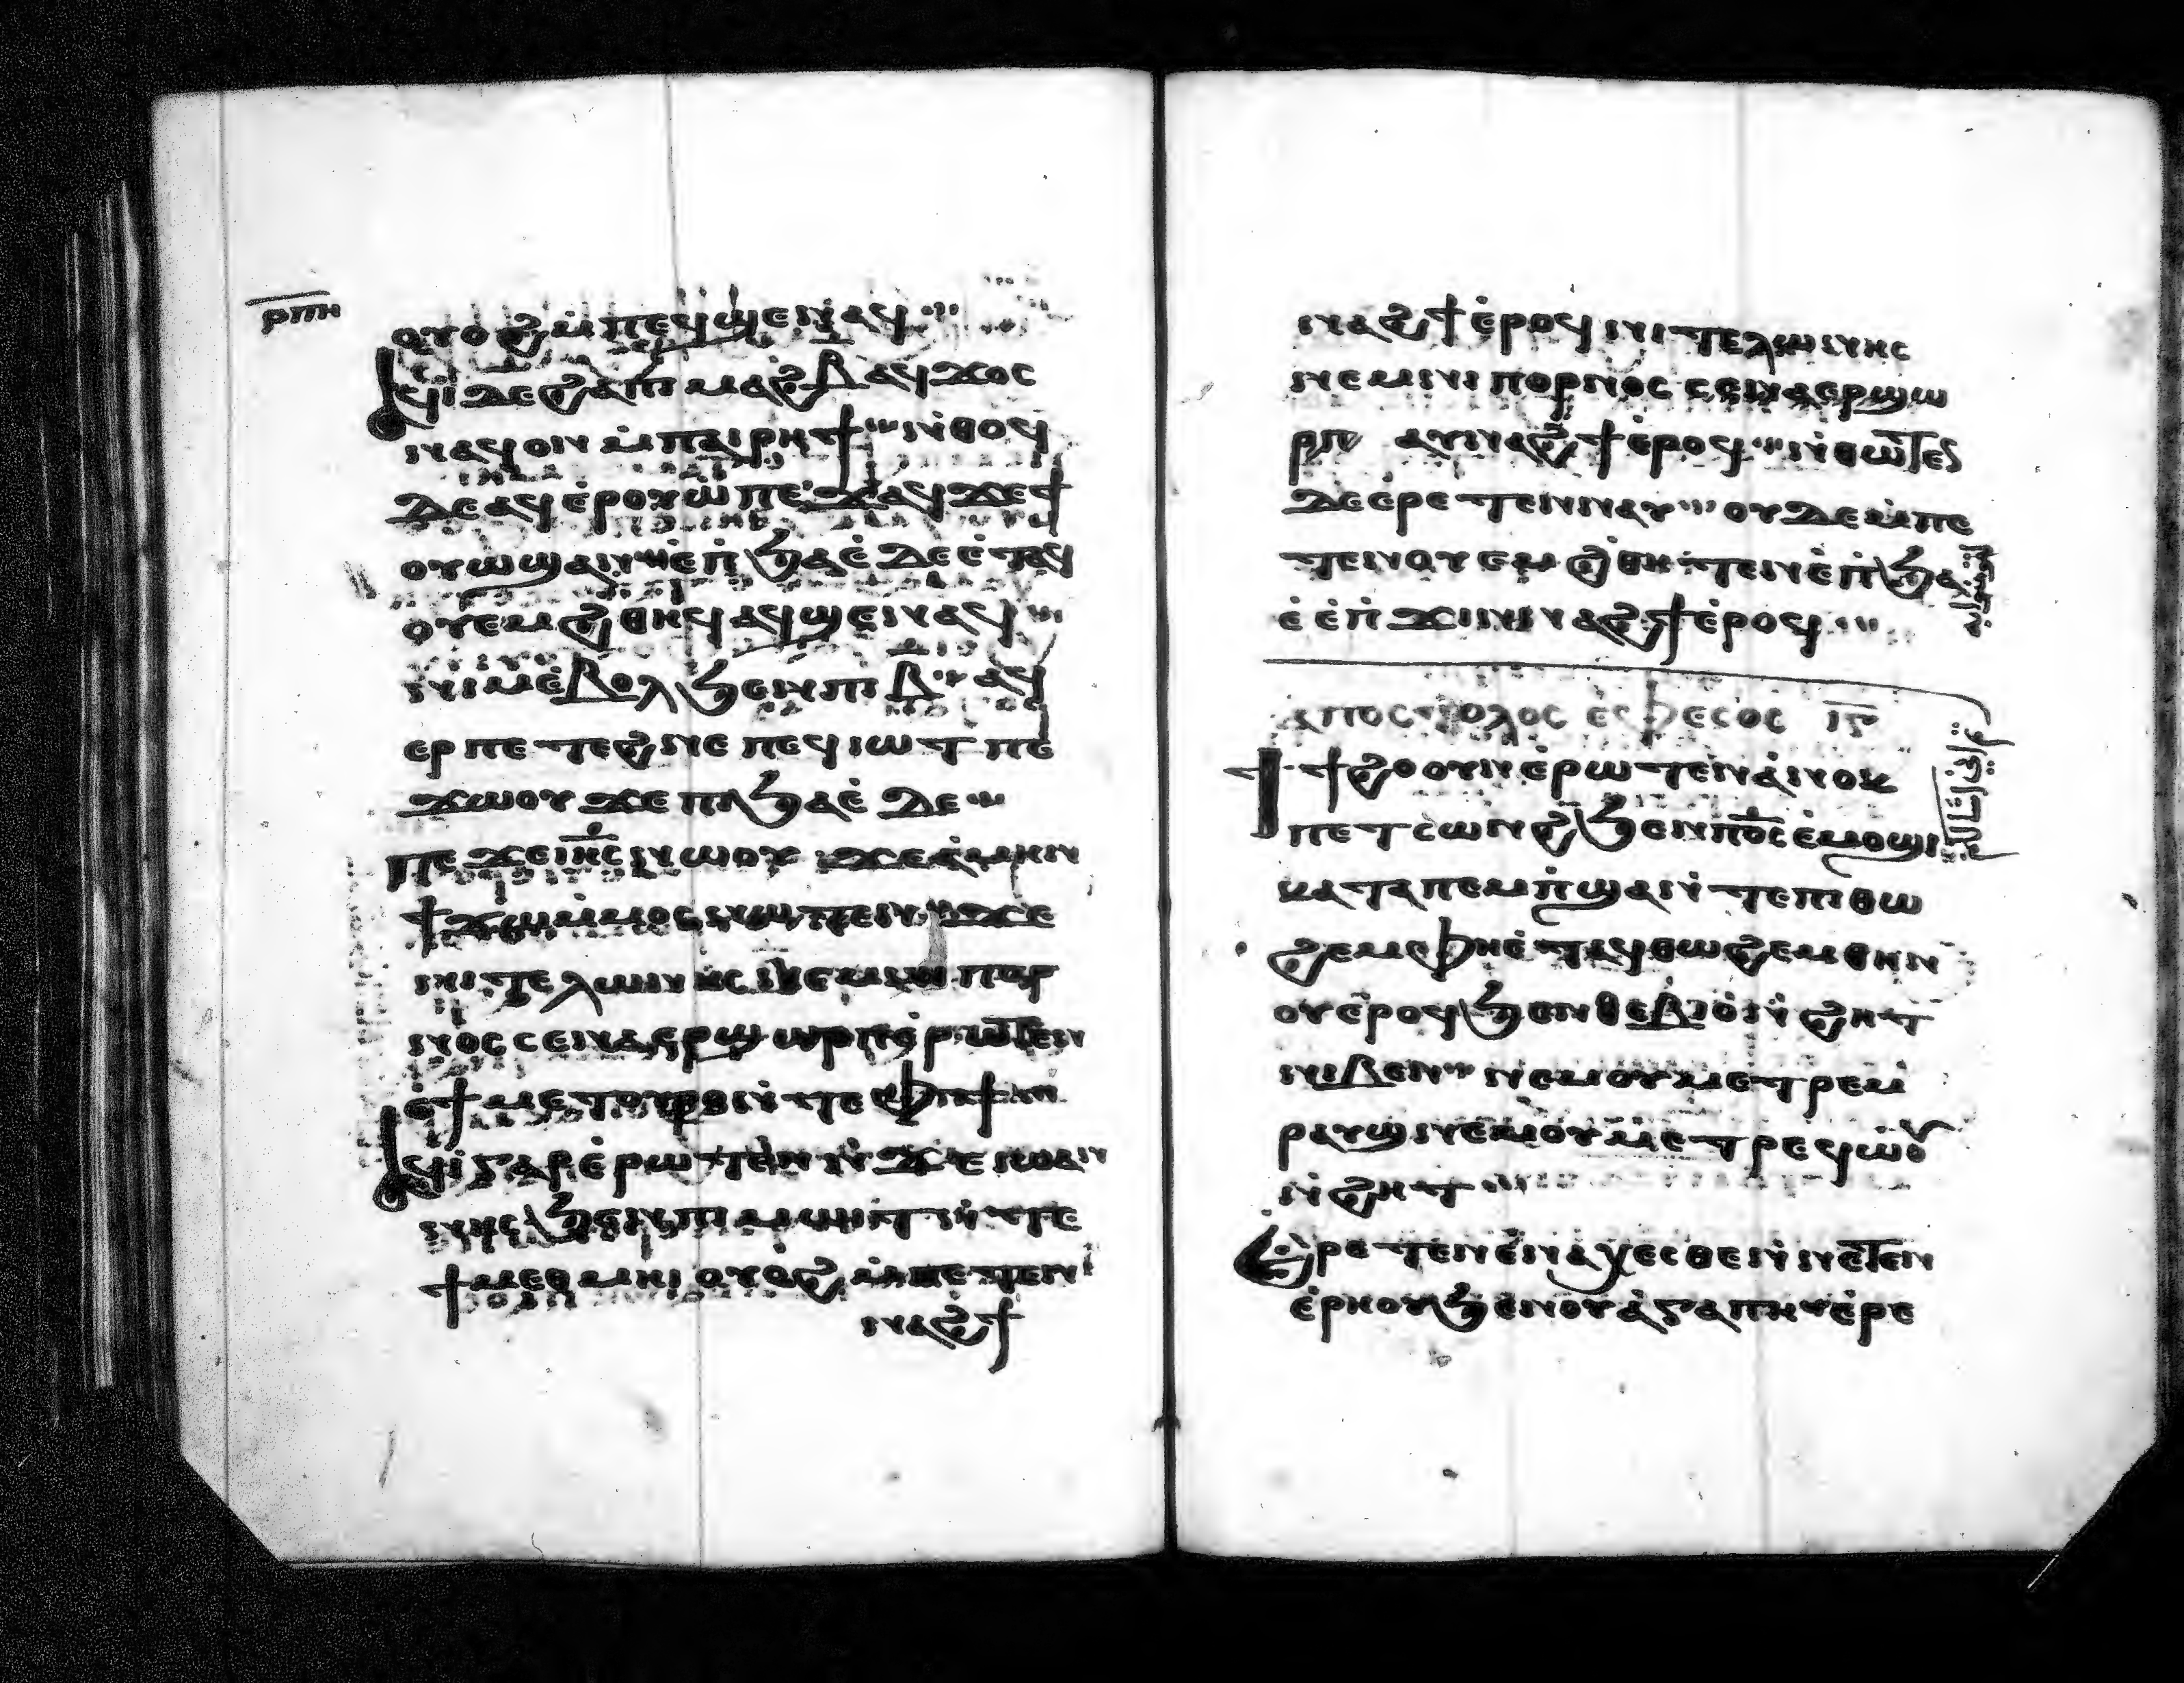 ⲣⲡⲏ
ⲟⲩⲟϩ ⲙ̇ⲡⲉϥϣⲉⲛⲁϥ
ⲉϥⲓ ⲇⲉ ϩⲁⲡⲓⲙⲁϩⲃ̅ ⲁϥϫⲟⲥ
ⲛⲁϥ ⲟⲛ ⲙ̇ⲡⲁⲓⲣⲏϯ ⲛ̇ⲑⲟϥ
ⲇⲉ ⲁϥⲉ̇ⲣⲟⲩⲱ ⲡⲉϫⲁϥ ϫⲉ ϯ
ⲟⲩⲱϣ ⲁⲛ ⲉ̇ⲡ̇ϧⲁⲉ̇ ⲇⲉ ⲉ̇ⲧⲁϥ
ⲟⲩⲉⲙϩⲑⲏϥ ⲁϥϣⲉⲛⲁϥ
ⲛⲓⲙ ⲉ̇ⲃⲟⲗ ϧⲉⲛ ⲡⲓⲃ̅ ⲁϥ
ⲉⲣ ⲡⲉⲧⲉϩⲛⲉ ⲡⲉϥⲓⲱⲧ ⲡⲉ
ϫⲱⲟⲩ ϫⲉ ⲡⲓϧⲁⲉ̇ ⲇⲉ
ⲡⲉϫⲉ ⲓⲏ̅ⲥ̅ ⲛⲱⲟⲩ ϫⲉ ⲁ̇ⲙⲏⲛ
ϯϫⲱ ⲙ̇ⲙⲟⲥ ⲛⲱⲧⲉⲛ ϫⲉ
ⲛⲓⲧⲉⲗⲱⲛⲏⲥ ⲛⲉⲙ ⲛⲓⲡⲟⲣ
ⲛⲟⲥ ⲥⲉⲛⲁⲉⲣϣⲱⲣⲡ ⲉ̇ⲣⲱⲧⲉⲛ
ⲉ̇ϯⲙⲉⲧⲟⲩⲣⲟ ⲛ̇ⲧⲉ ⲫϯ
ⲁϥⲓ̇ ⲅⲁⲣ ⲉ̇ⲣⲱⲧⲉⲛ ⲛ̇ϫⲉ ⲓⲱⲁⲛ
ⲛⲏⲥ ϧⲉⲛ ⲡⲓⲙⲱⲓⲧ ⲛ̇ⲧⲉ
ϯⲙⲉⲑⲙⲏⲓ ⲟⲩⲟϩ ⲙ̇ⲡⲉⲧⲉⲛ
ⲛⲁϩϯ
ⲛⲁϩϯ ⲉ̇ⲣⲟϥ ⲛⲓⲧⲉⲗⲱⲛⲏⲥ
ⲛⲉⲙ ⲛⲓⲡⲟⲣⲛⲟⲥ ⲥⲉⲛⲁⲉⲣϣⲱ
ⲣⲡ ⲁⲩⲛⲁϩϯ ⲉ̇ⲣⲟϥ ⲛ̇ⲑⲱⲧⲉⲛ
ⲇⲉ ⲉ̇ⲣⲉⲧⲉⲛⲛⲁⲩ ⲟⲩⲇⲉ ⲙ̇ⲡⲉ
ⲧⲉⲛⲟⲩⲉⲙϩⲑⲏⲧⲉⲛ ⲉ̇ⲡ̇ϧⲁ
ⲉ̇ ⲉ̇ⲡ̇ϫⲓⲛⲛⲁϩϯ ⲉ̇ⲣⲟϥ
ⲁⲡⲟⲥⲧⲟⲗⲟⲥ ⲉⲫⲉⲥⲟⲥ ⲓ̅ⲅ̅
ϯϯϩⲟ ⲟⲩⲛ ⲉ̇ⲣⲱⲧⲉⲛ ⲁ̇ⲛⲟⲕ
ⲡⲉⲧⲥⲱⲛϩ ϧⲉⲛ ⲡⲟ̅ⲥ̅ ⲉ̇ⲙⲟϣⲓ
ⲕⲁⲧⲁ ⲡⲉⲙⲡ̇ϣⲁ ⲛ̇ⲧⲉ ⲡⲓⲑⲱ
ϩⲉⲙ ⲫⲏ ⲉ̇ⲧⲁϥⲑⲱϩⲉⲙ ⲑⲏⲛ
ⲟⲩ ⲉ̇ⲣⲟϥ ϧⲉⲛ ⲑⲉⲃⲓⲟ̇ ⲛ̇ϩⲏⲧ
ⲛⲓⲃⲉⲛ ⲛⲉⲙ ⲟⲩⲙⲉⲧⲣⲉⲙ
ⲣⲁⲩϣ ⲛⲉⲙ ⲟⲩⲙⲉⲧⲣⲉϥⲱⲟⲩ
ⲛ̇ϩⲏⲧ
ⲉ̇ⲣⲉⲧⲉⲛⲉ̇ⲛⲁⲭⲉⲥⲑⲉ ⲛ̇ⲛⲉⲧⲉⲛ
ⲉ̇ⲣⲏⲟⲩ ϧⲉⲛ ⲟⲩⲁ̇ⲅⲁⲡⲏ ⲉ̇ⲣⲉ